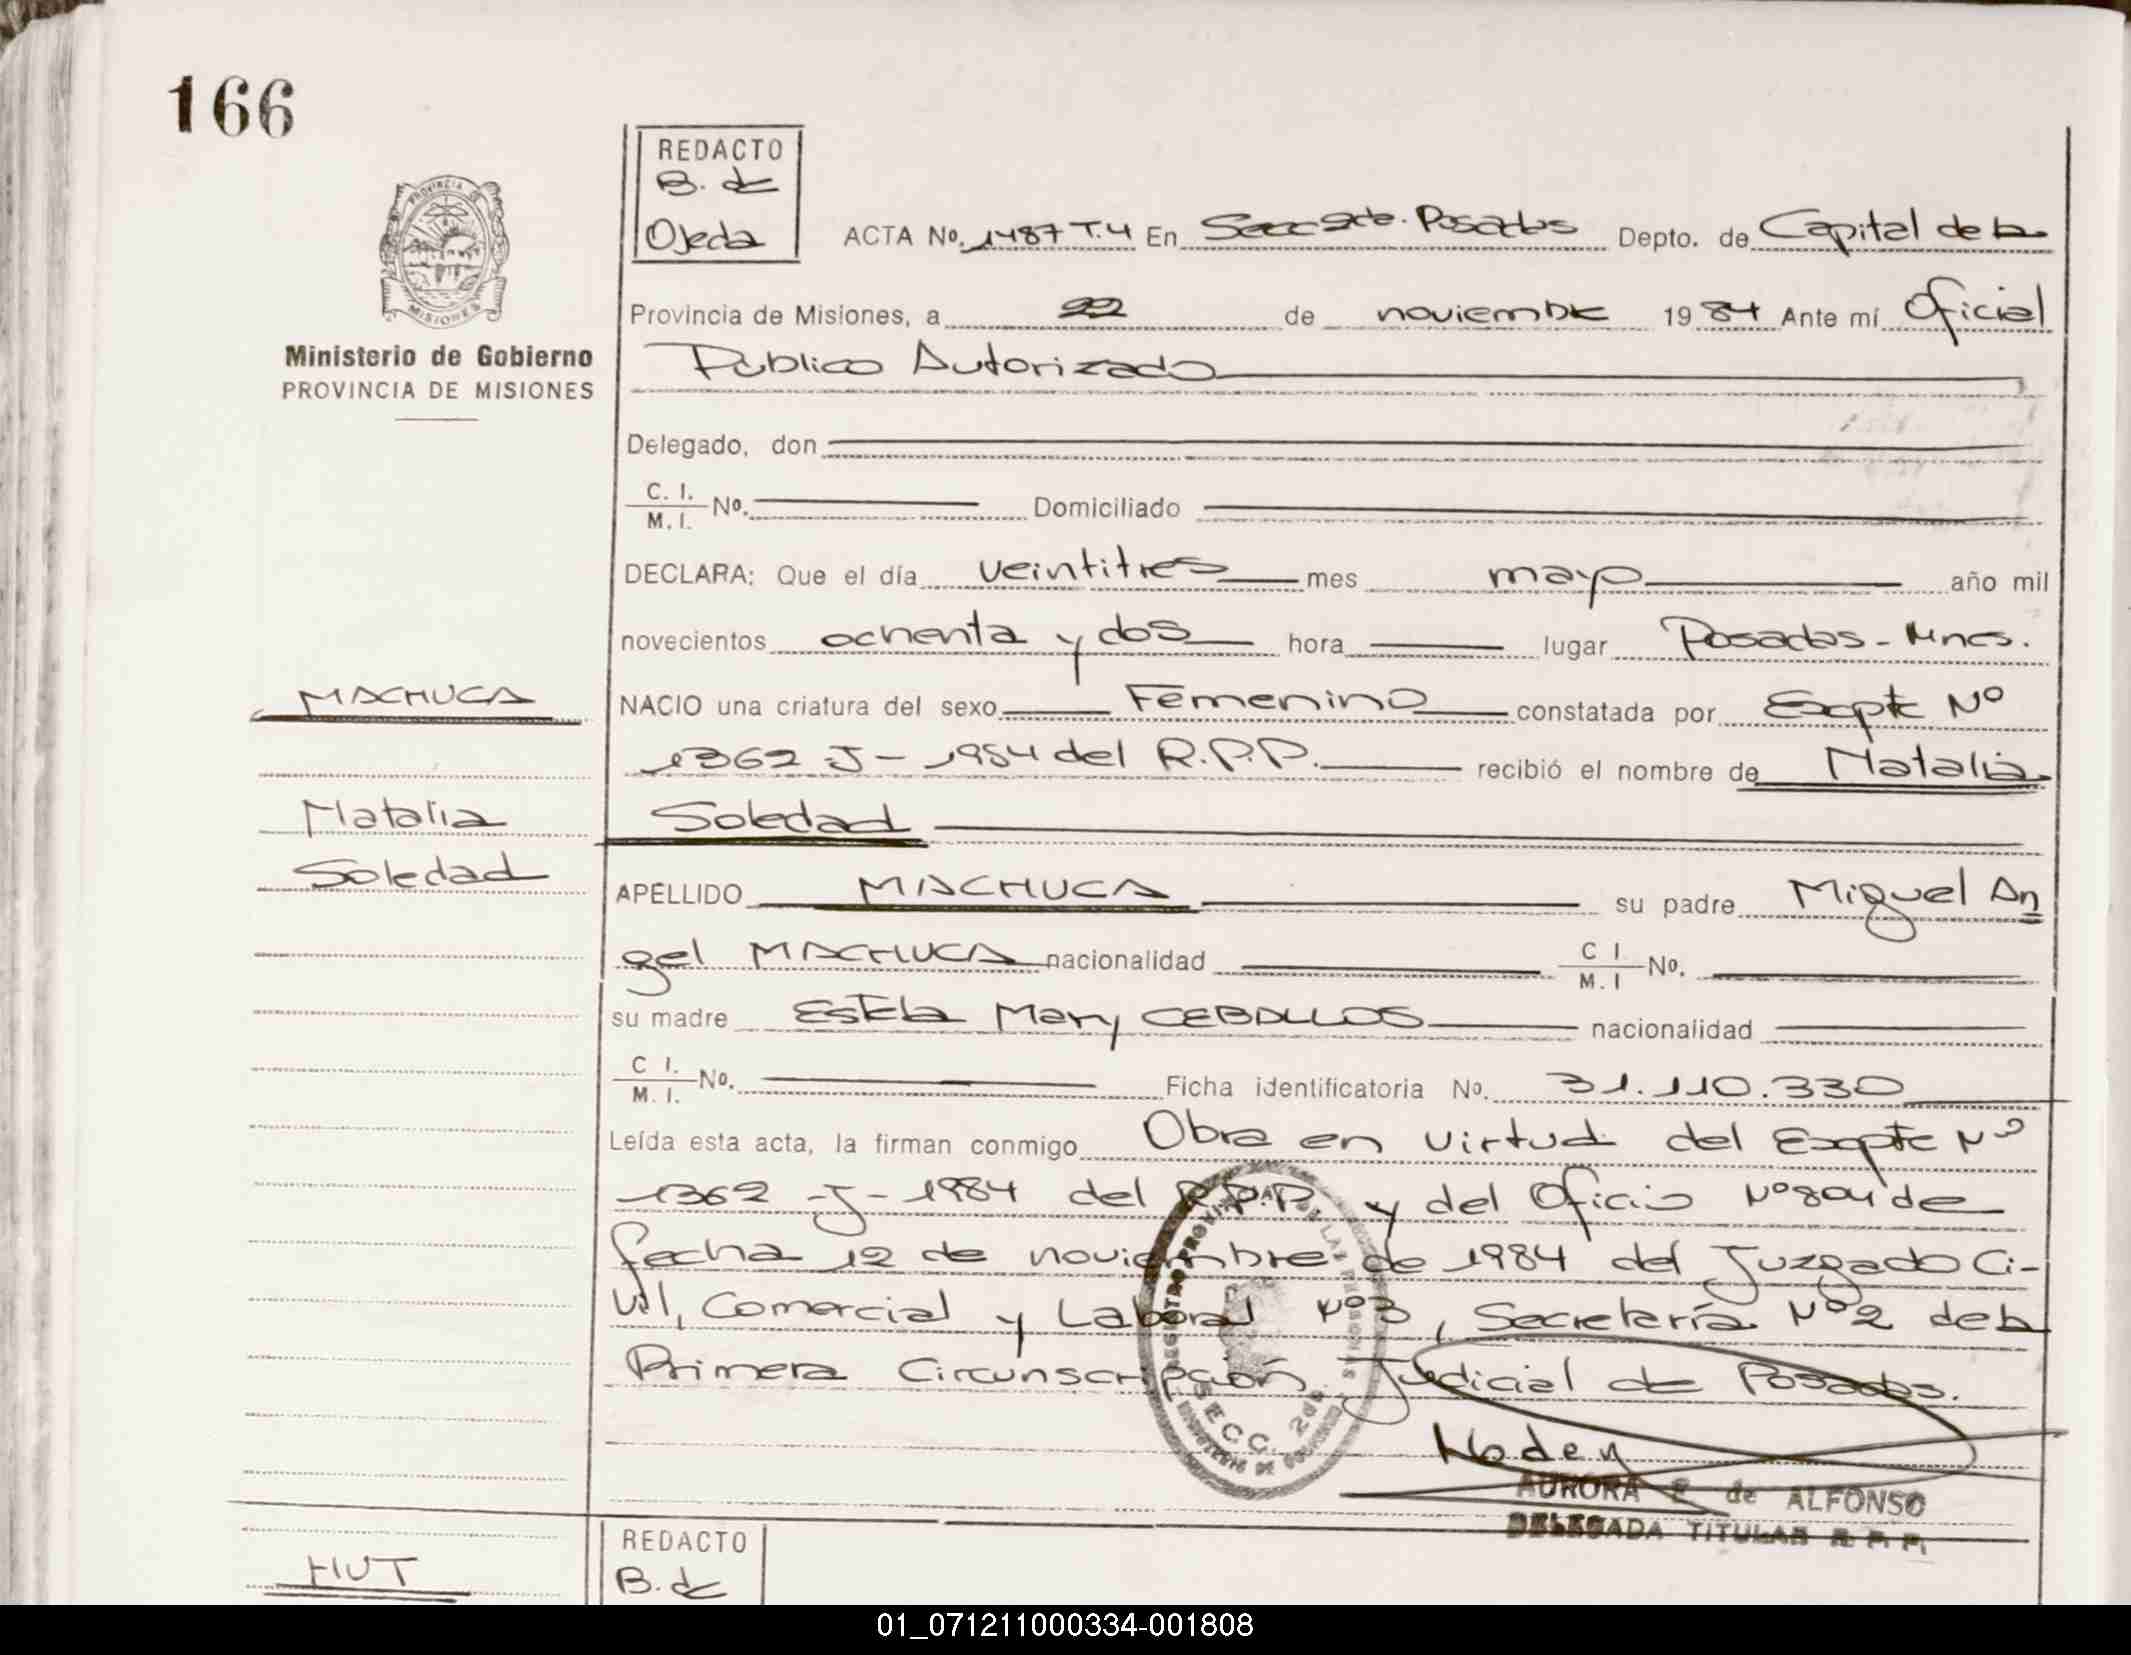 166
REDACTO
B. de
Ojeda
ACTA No. 1487 T.4 En Secc 2da. Posadas Depto. de Capital de la
PROVINCIA DE MISIONES
Provincia de Misiones, a 22 de noviembre 1984 Ante mí Oficial
Ministerio de Gobierno
PROVINCIA DE MISIONES
Público Autorizado
Delegado, don
C. I. M. I. No. Domiciliado
DECLARA: Que el día veintitres mes mayo año mil
novecientos ochenta y dos hora lugar Posadas - Mnes.
MACHUCA
NACIO una criatura del sexo Femenino constatada por Expte Nº
1362 -J- 1984 del R.P.P. recibió el nombre de Natalia
Natalia
Soledad
Soledad
APELLIDO MACHUCA su padre Miguel An
gel MACHUCA nacionalidad C I M. I No.
su madre Estela Mary CEBALLOS nacionalidad
C I. M. I. No. Ficha identificatoria No. 31.110.330
Leída esta acta, la firman conmigo Obra en virtud del Expte Nº
1362 -J- 1984 del R.P.P y del Oficio Nº 804 de
fecha 12 de noviembre de 1984 del Juzgado Ci-
vil, Comercial y Laboral Nº 3, Secretaría Nº 2 de la
Primera Circunscripción Judicial de Posadas.
SECC. 2da
AURORA E de ALFONSO
DELEGADA TITULAR R. P. P.
HUT
REDACTO
B. de
01_071211000334-001808